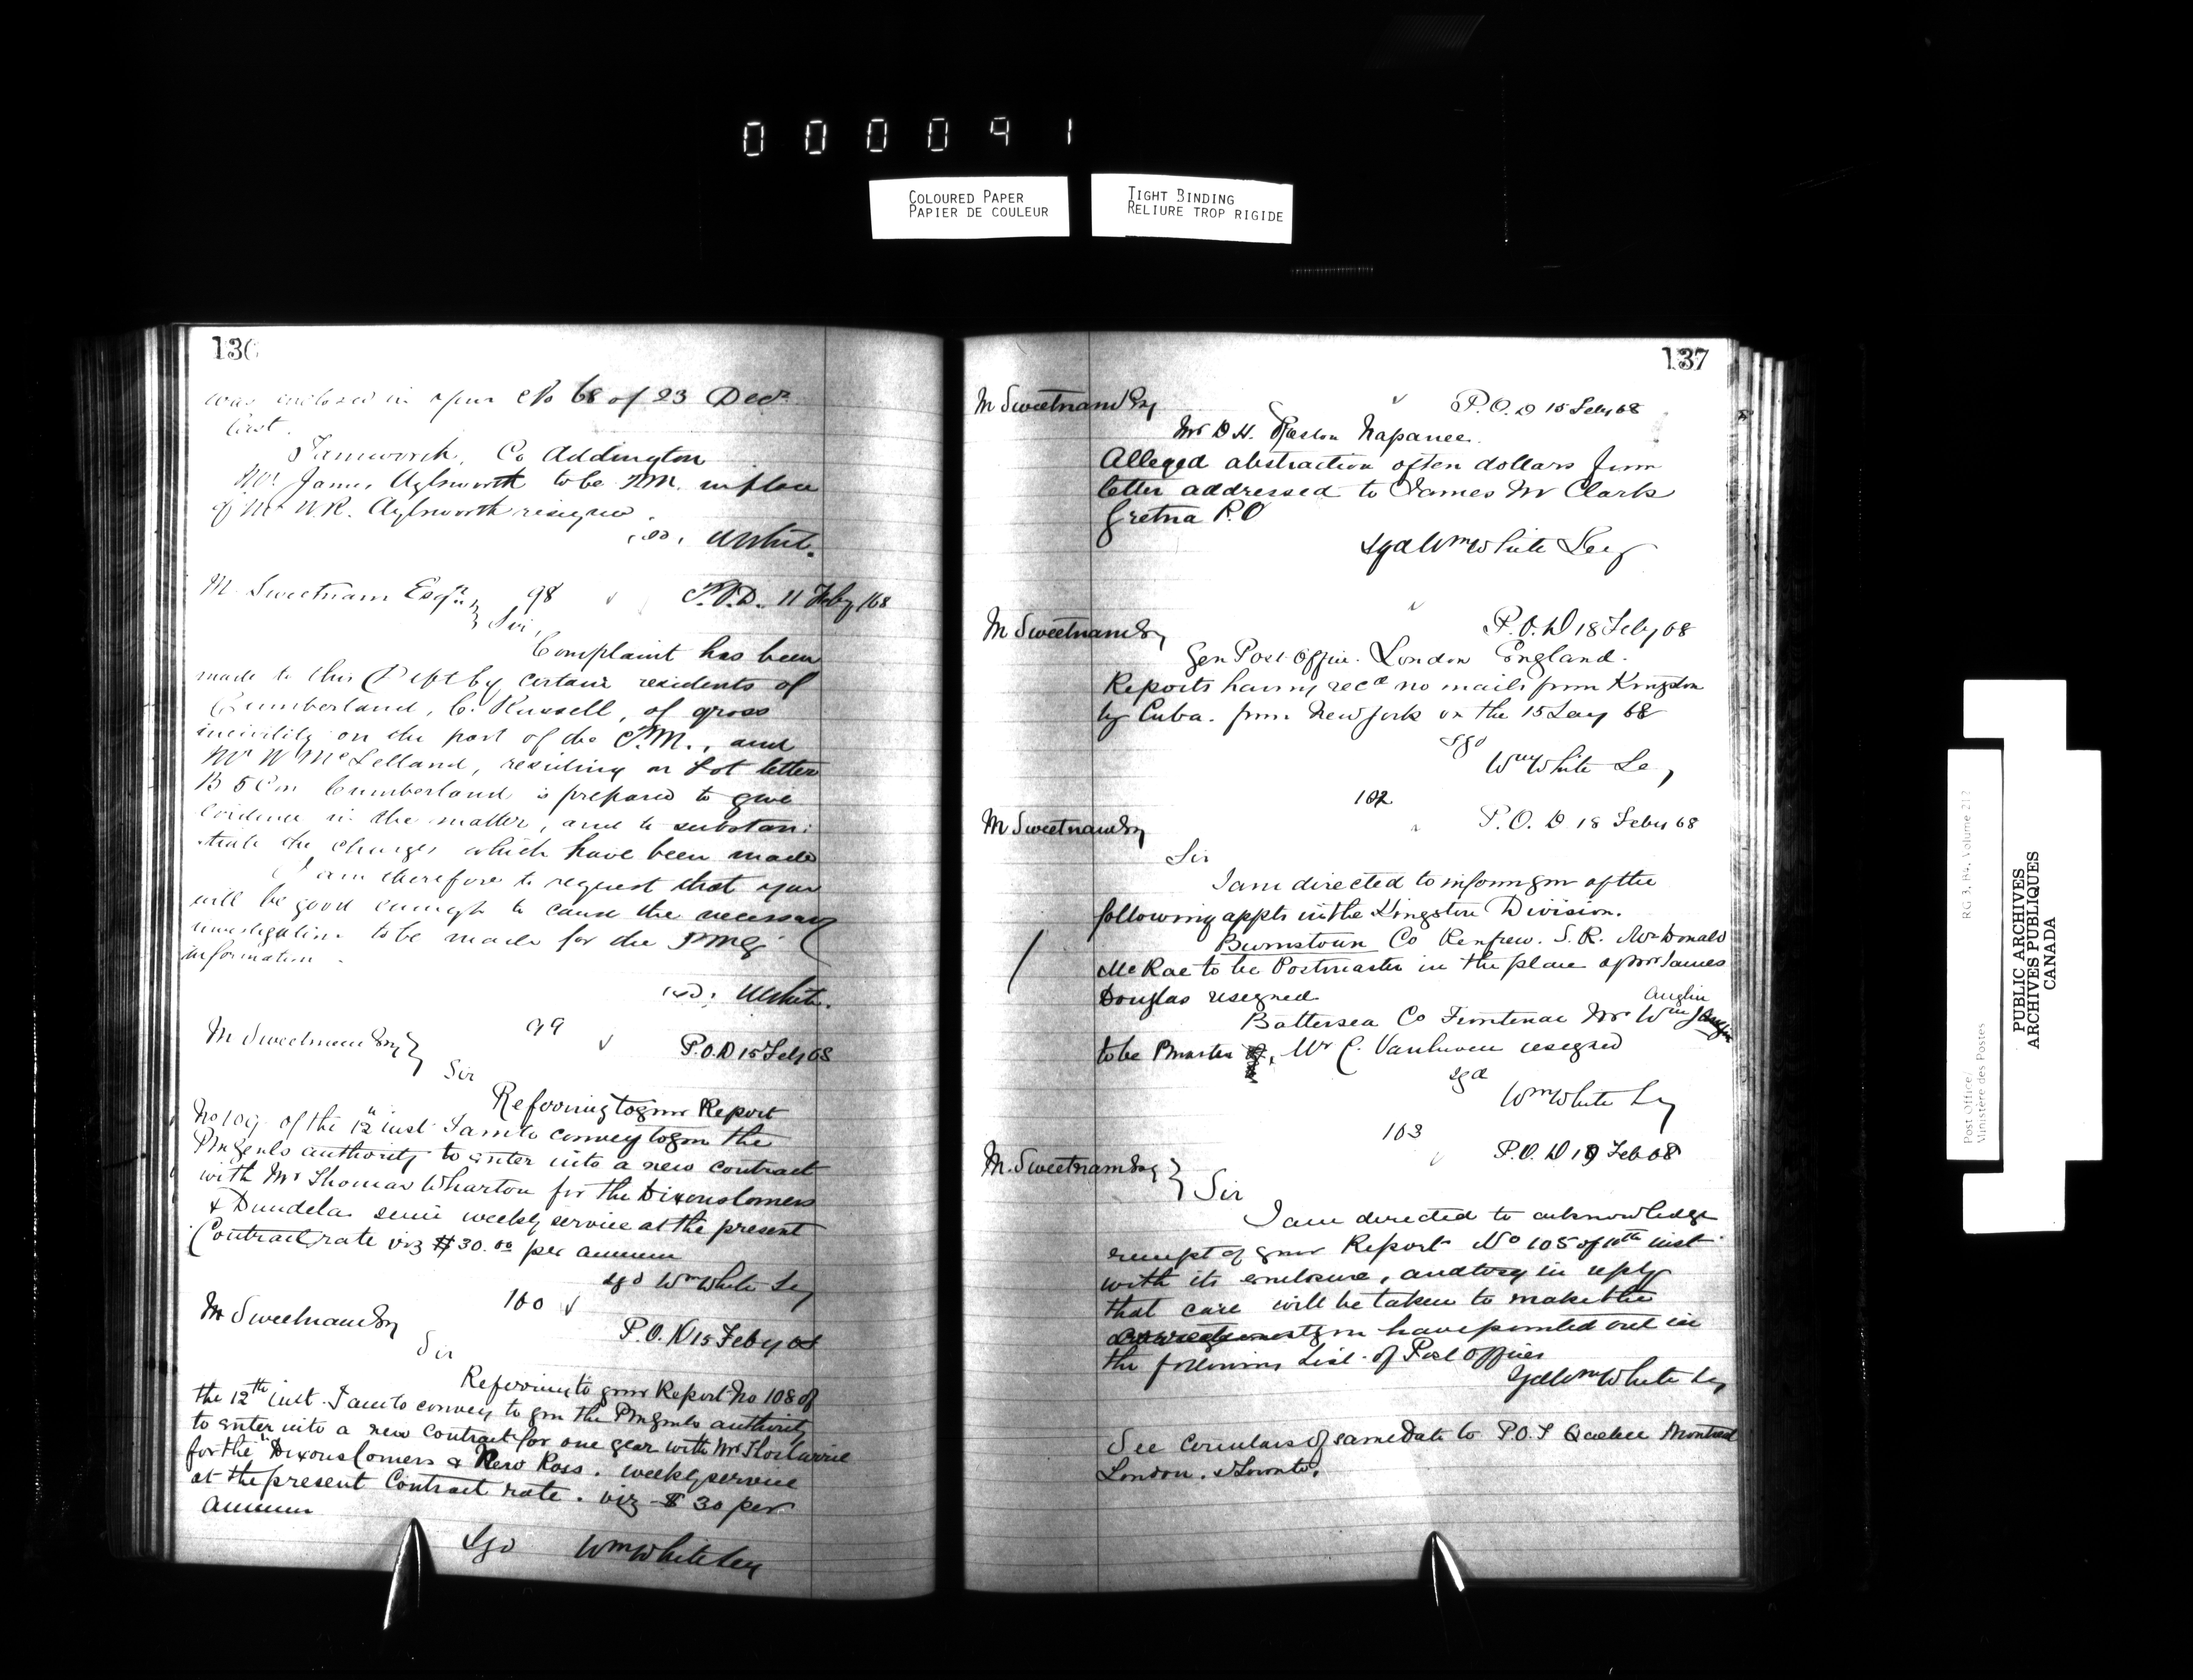 000091
COLOURED PAPER
PAPIER DE COULEUR
TIGHT BINDING
RELIURE TROP RIGIDE
136
was enclosed in your No 68 of 23 Decr
last.
Tamworth, Co Addington
Mr James Aylsworth to be P.M. in place
of Mr W.R. Aylsworth resigned.
W White.
M Sweetnam Esqre 98 P.O.D. 11 Feby /68
Sir,
Complaint has been
made to this Dept by certain residents of
Cumberland, C. Russell, of gross
incivility on the part of the P.M., and
Mr W McLelland, residing on Lot letter
B 5 Con Cumberland is prepared to give
evidence in the matter, and to substan:
:tiate the charges which have been made
I am therefore to request that you
will be good enough to cause the necessary
investigation to be made for the PMG
information.
W White.
M Sweetnam Esq 99 P.O.D 15 Feby 68
Sir
Referring to your Report
No 109 of the 12th inst I am to convey to you the
PmGenls authority to enter into a new contract
with Mr Thomas Wharton for the Dixons Corners
& Dundela semi weekly service at the present
Contract rate viz $30.00 per annum
sgd Wm White Sey
M Sweetnam Esq 100 P.O.D 15 Feby 68
Sir
Referring to your Report No 108 of
the 12th inst. I am to convey to you the PmGenls authority
to enter into a new Contract for one year with Mr Thos Currie
for the Dixons Corners & New Ross. weekly service
at the present Contract rate. viz $30 per
annum
Sgd Wm White Sey
137
M Sweetnam Esq P.O.D 15 Feby 68
Mr D H. Napanee.
Alleged abstraction of ten dollars from
letter addressed to James Clark
Gretna P.O
sgd Wm White Secy
M Sweetnam Esq P.O.D 18 Feby 68
Gen Post Office. London England.
Reports having recd no mails from Kingston
by Cuba. from New York on the 15 Jany 68
sgd
Wm White Sey
102
M Sweetnam Esq P.O.D 18 Feby 68
Sir
I am directed to inform you of the
following appts in the Kingston Division.
Burnstown Co Renfrew. S.R. Mr Donald
McRae to be Postmaster in the place of Mr James
Douglas resigned
Anglin
Battersea Co Frontenac Mr Wm
to be Pmaster Mr C. Vanluven resigned
sgd
Wm White Sey
103
M. Sweetnam Esq P.O.D 19 Feb 68
Sir
I am directed to acknowledge
receipt of your Report No 105 of 10th inst
with its enclosure, and to say in reply
that care will be taken to make the
you have pointed out in
the following List of Post Offices
Sgd Wm White Sey
See Circulars of same date to P.O.I Quebec Montreal
London. & Toronto.
Post Office/
Ministère des Postes
RG 3, B4, Volume 212
PUBLIC ARCHIVES
ARCHIVES PUBLIQUES
CANADA